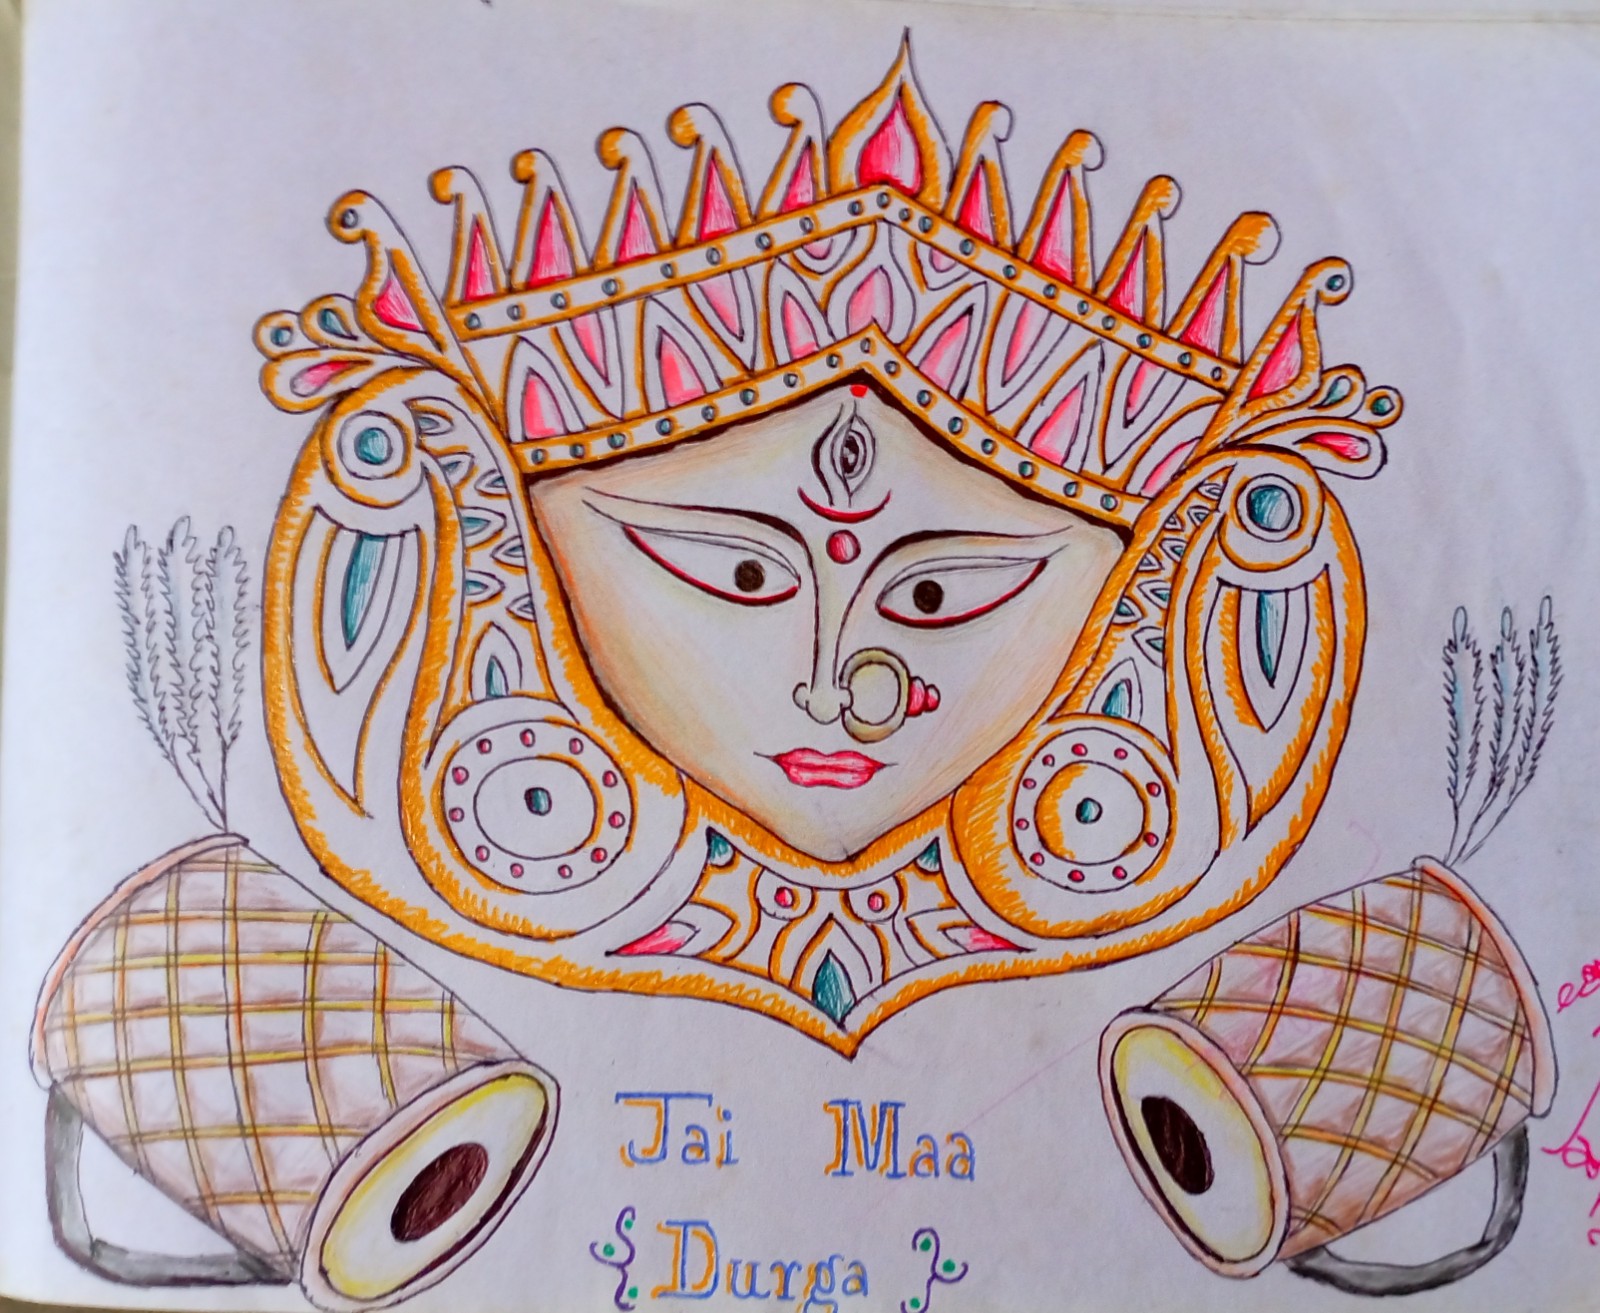 Jai Maa
{ Durga }